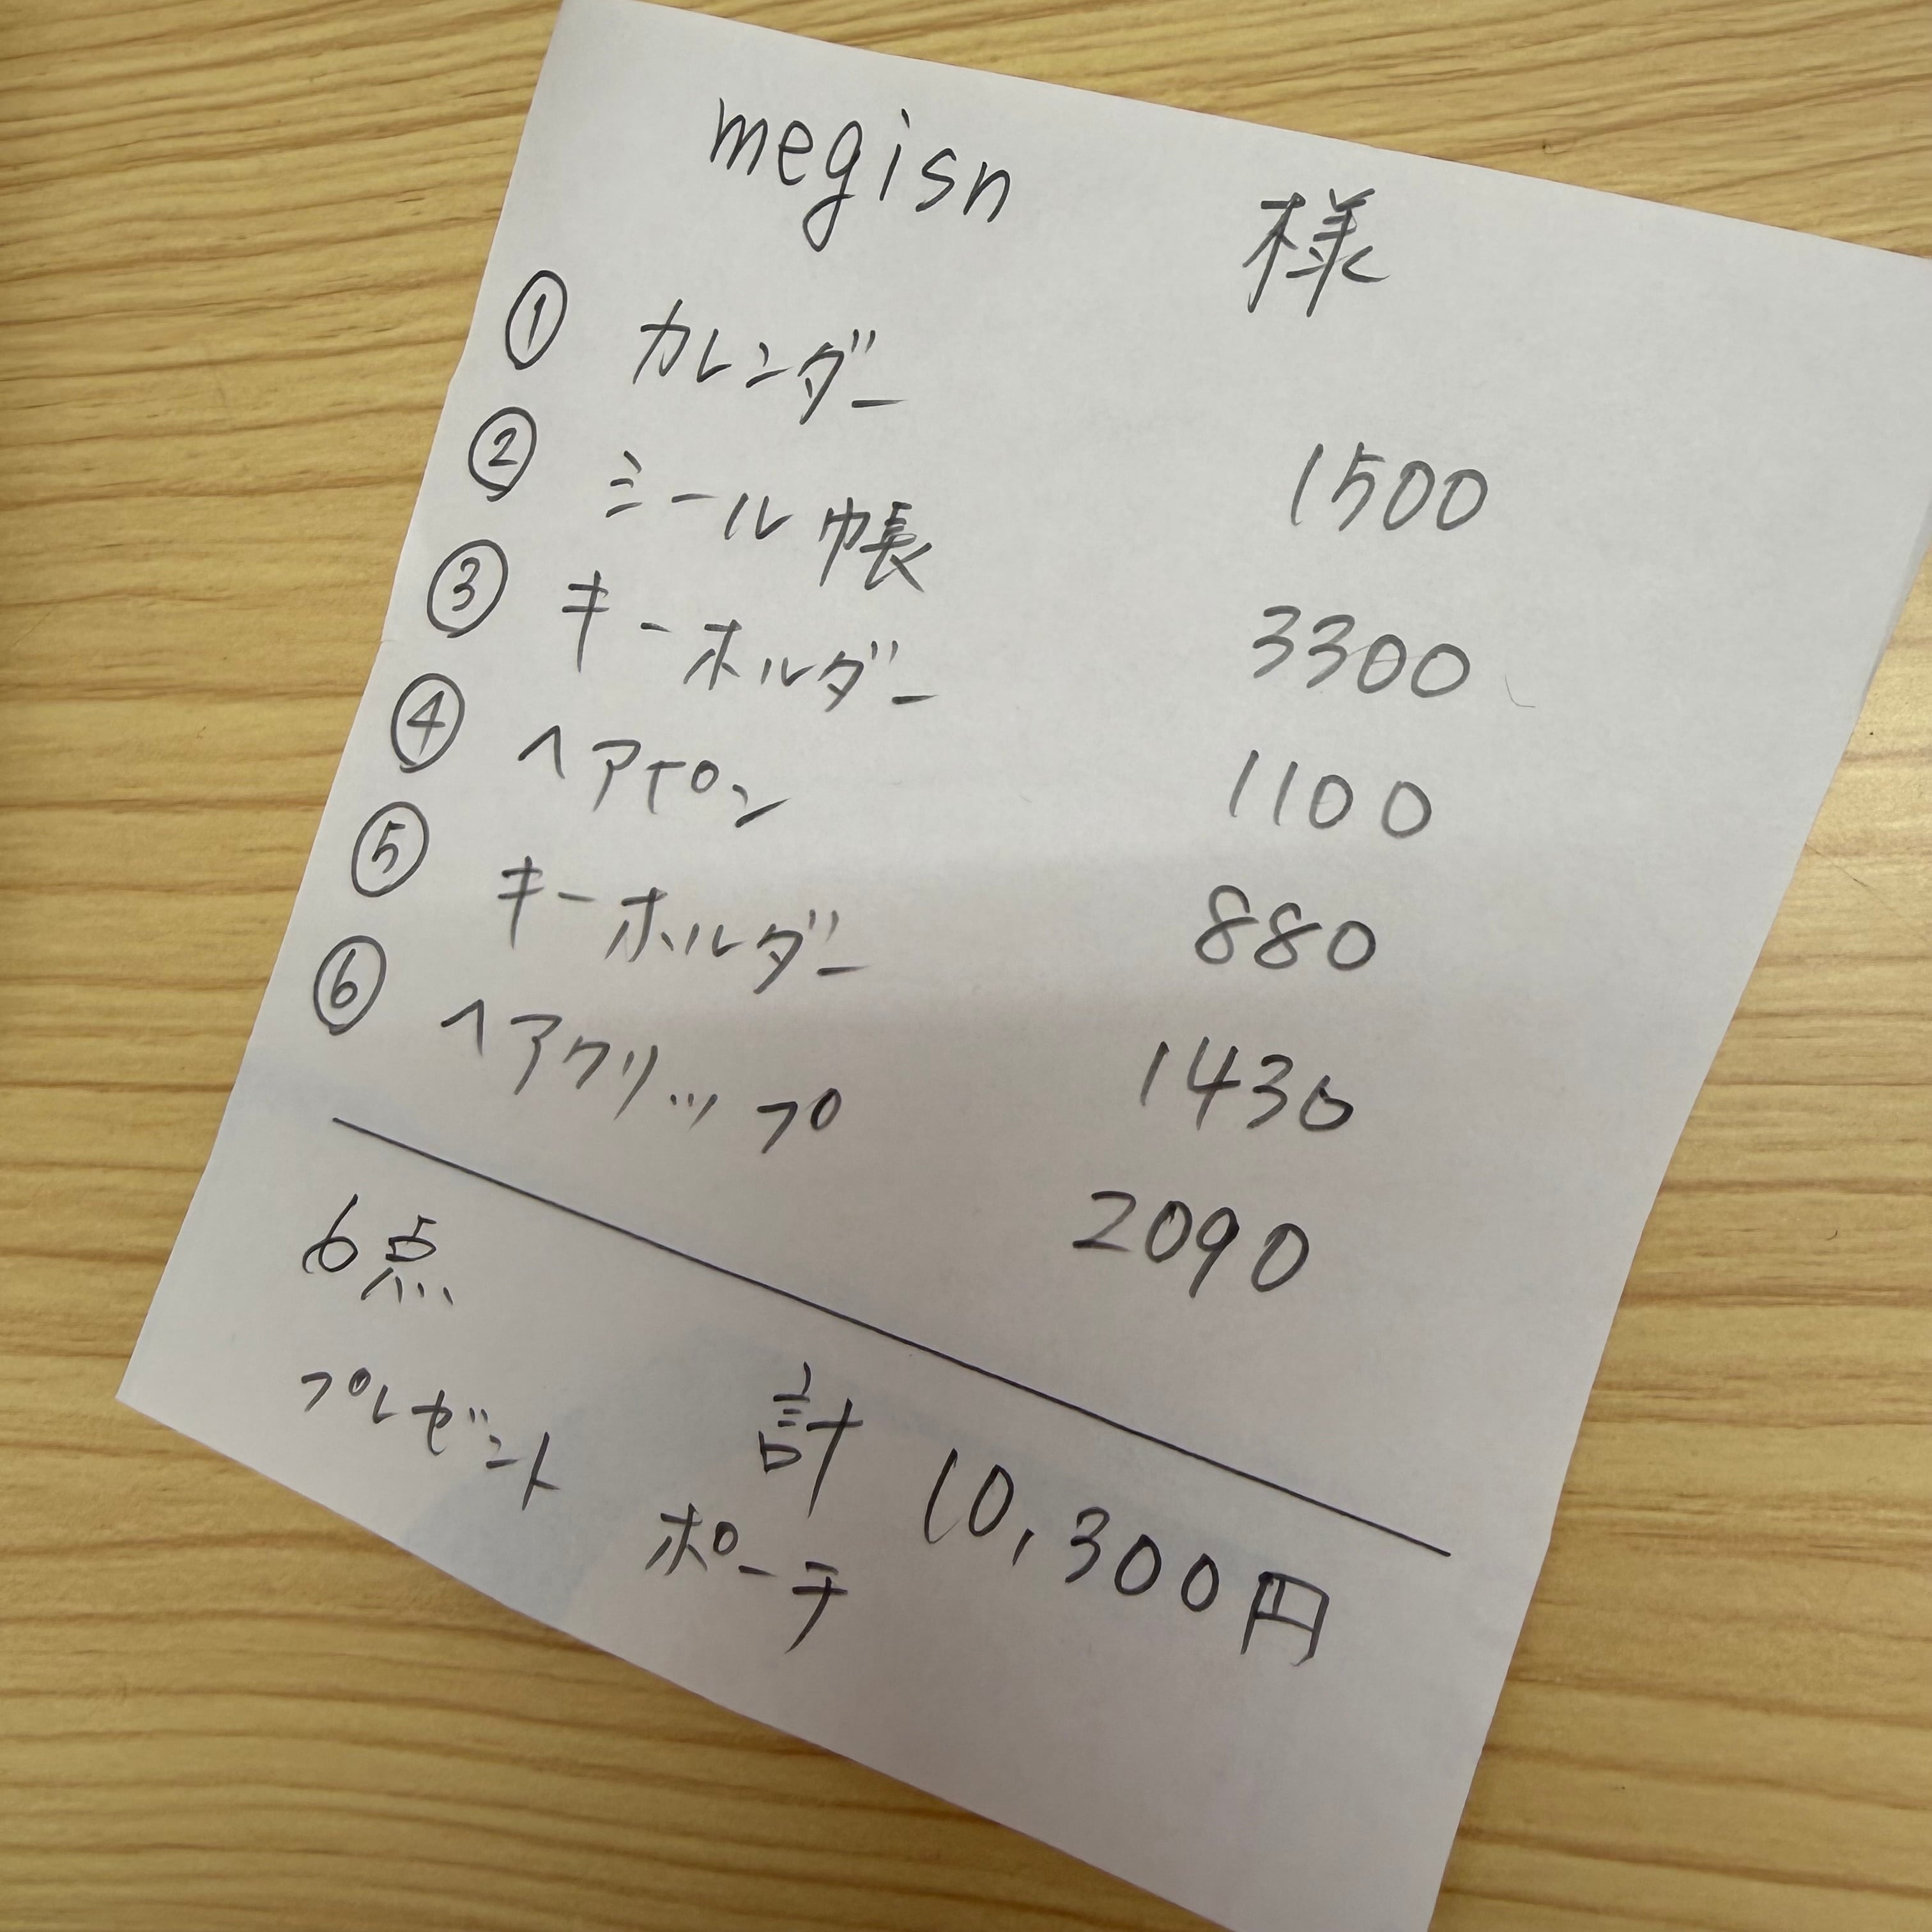 megisn 様
① カレンダー 1500
② シール帳 3300
③ キーホルダー 1100
④ ヘアピン 880
⑤ キーホルダー 1430
⑥ ヘアクリップ 2090
6点 計 10,300円
プレゼント ポーチ